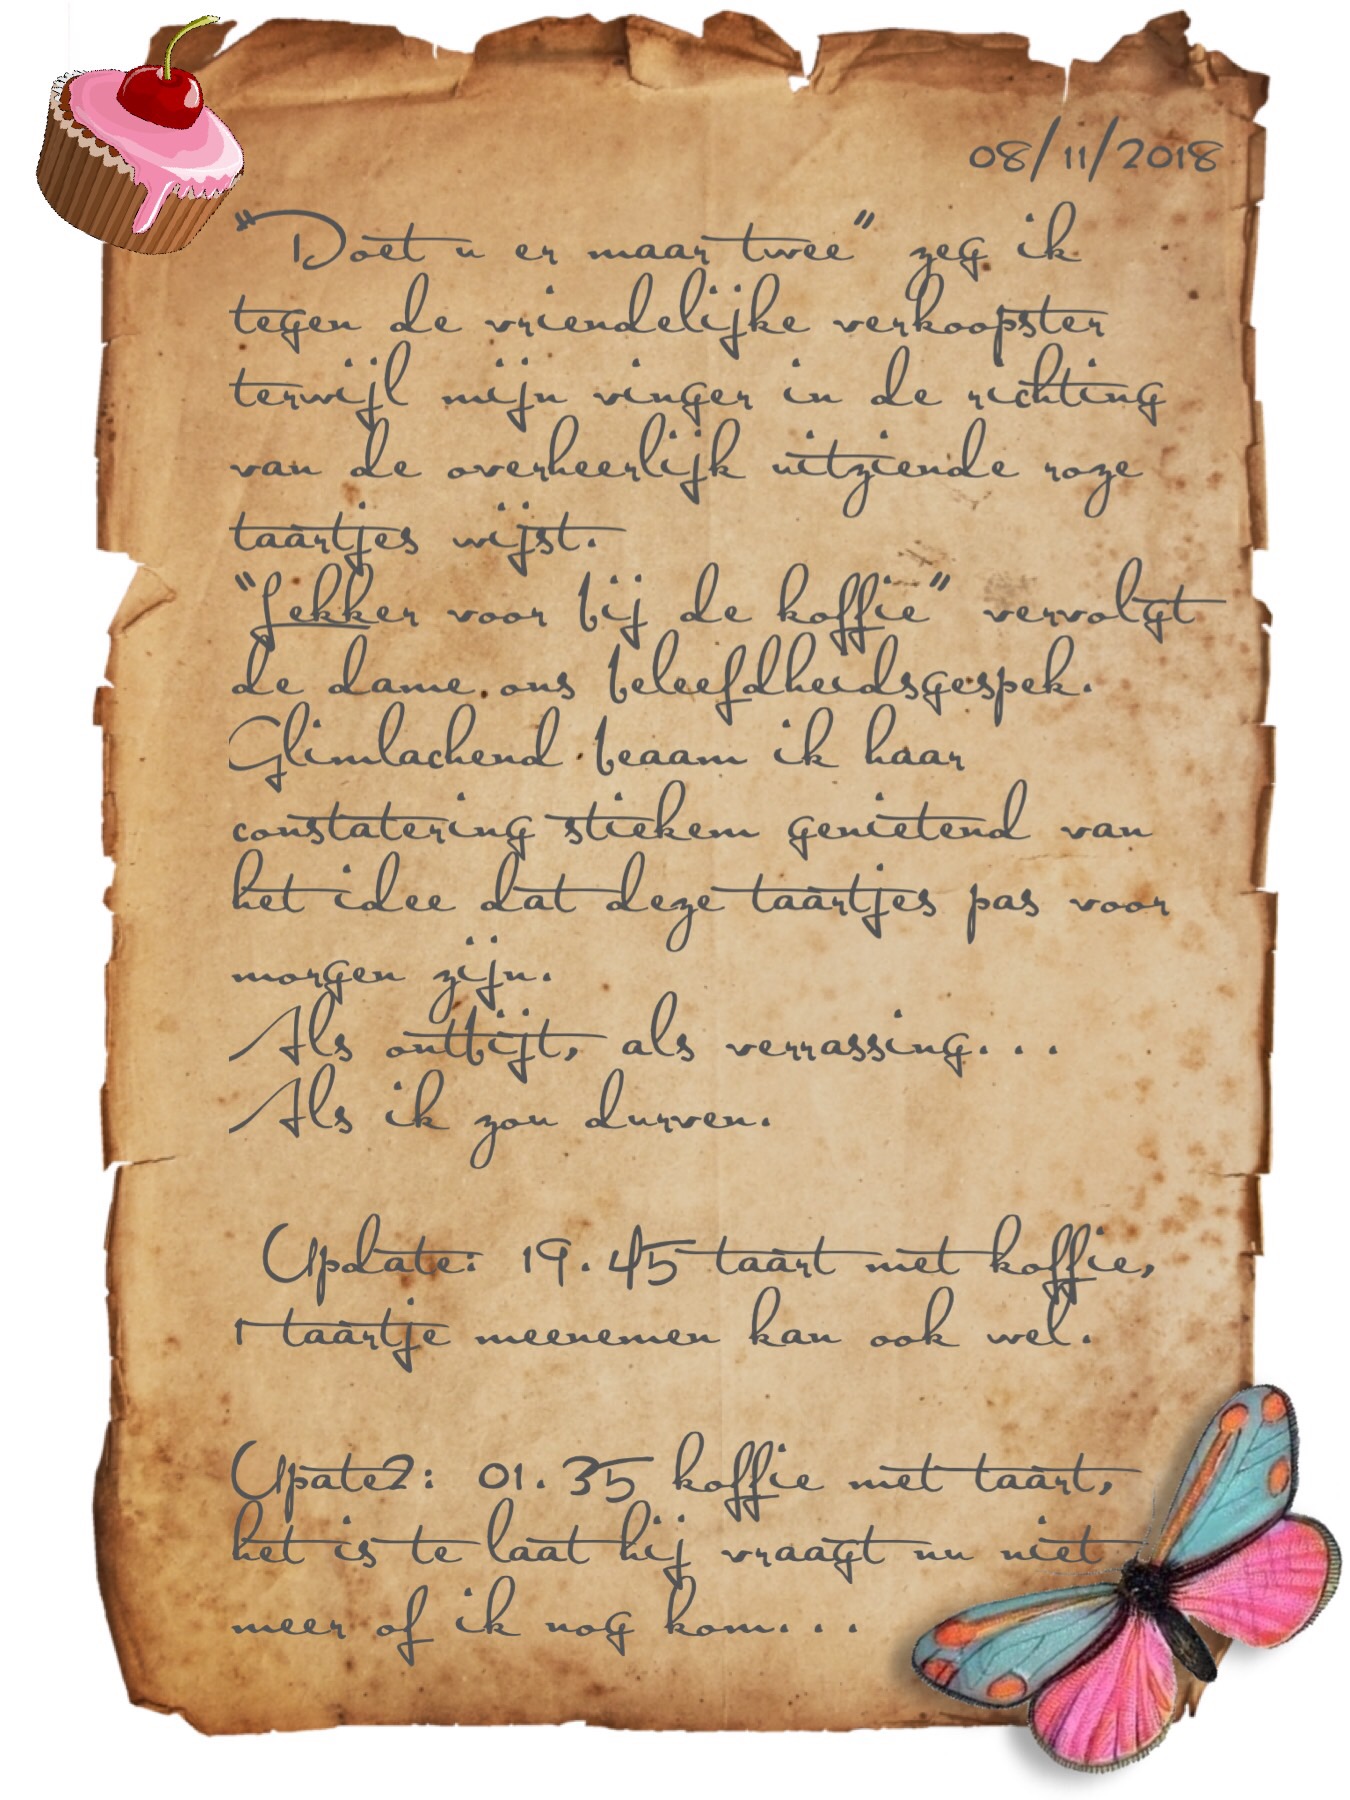 08/11/2018
"Doet u er maar twee" zeg ik
tegen de vriendelijke verkoopster
terwijl mijn vinger in de richting
van de overheerlijk uitziende roze
taartjes wijst.
"Lekker voor bij de koffie" vervolgt
de dame ons beleefdheidsgespek.
Glimlachend beaam ik haar
constatering stiekem genietend van
het idee dat deze taartjes pas voor
morgen zijn.
Als ontbijt, als verrassing...
Als ik zou durven.
Update: 19.45 taart met koffie,
1 taartje meenemen kan ook wel.
Upate2: 01.35 koffie met taart,
het is te laat hij vraagt nu niet
meer of ik nog kom...